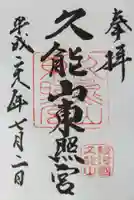 奉拝
久能山東照宮
平成二十八年七月二日